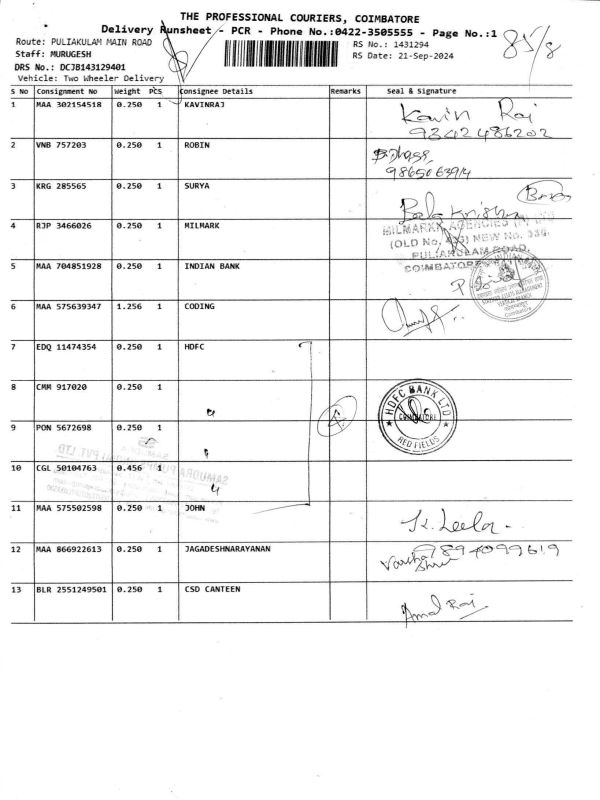 THE PROFESSIONAL COURIERS, COIMBATORE
Delivery Runsheet - PCR - Phone No.:0422-3505555 - Page No.:1
85/8
Route: PULIAKULAM MAIN ROAD
RS No.: 1431294
Staff: MURUGESH
RS Date: 21-Sep-2024
DRS No.: DCJB143129401
Vehicle: Two Wheeler Delivery
S No Consignment No Weight PCS Consignee Details Remarks Seal & Signature
1 MAA 302154518 0.250 1 KAVINRAJ Kavin Raj
9342486202
2 VNB 757203 0.250 1 ROBIN
9865063914
3 KRG 285565 0.250 1 SURYA Bala Krishna
4 RJP 3466026 0.250 1 MILMARK MILMARK AGENCIES (P) LTD
(OLD No. NEW No. 334,
PULIAKULAM ROAD,
COIMBATORE
5 MAA 704851928 0.250 1 INDIAN BANK
6 MAA 575639347 1.256 1 CODING
7 EDQ 11474354 0.250 1 HDFC
8 CMM 917020 0.250 1 4 HDFC BANK LTD
COIMBATORE
RED FIELDS
9 PON 5672698 0.250 1
10 CGL 50104763 0.456 4
11 MAA 575502598 0.250 1 JOHN K. Leela
12 MAA 866922613 0.250 1 JAGADESHNARAYANAN 7894099619
Varsha
Shri
13 BLR 2551249501 0.250 1 CSD CANTEEN Amal Raj